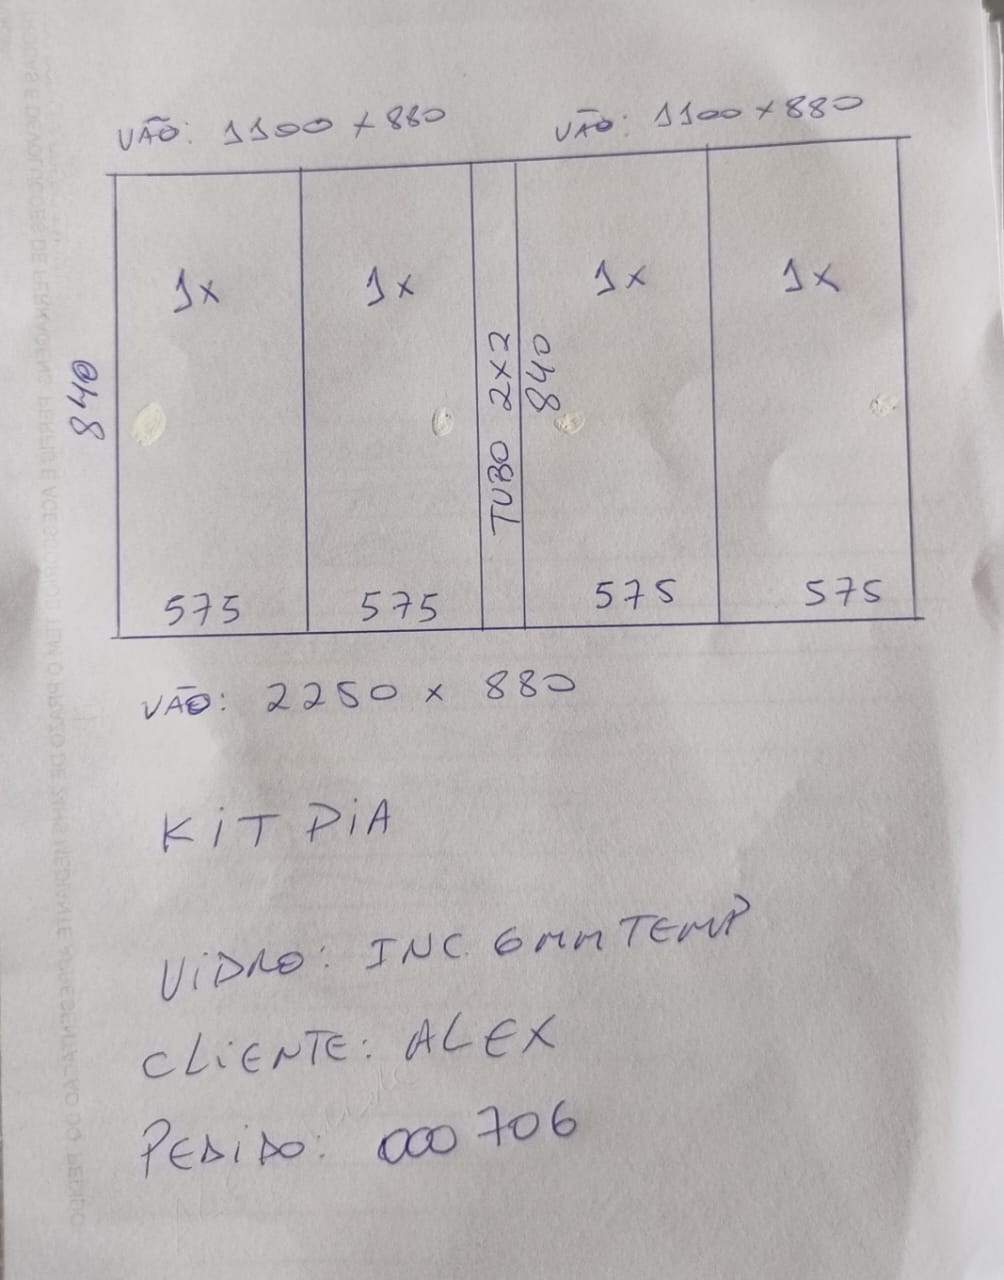 VÃO: 1100 x 880
VÃO: 1100 x 880
1x
1x
1x
1x
840
TUBO 2x2
840
575
575
575
575
VÃO: 2250 x 880
KiT DiA
ViDRO: INC. 6mm TEMP
CLiENTE: ALEX
PEDiDO: 000706